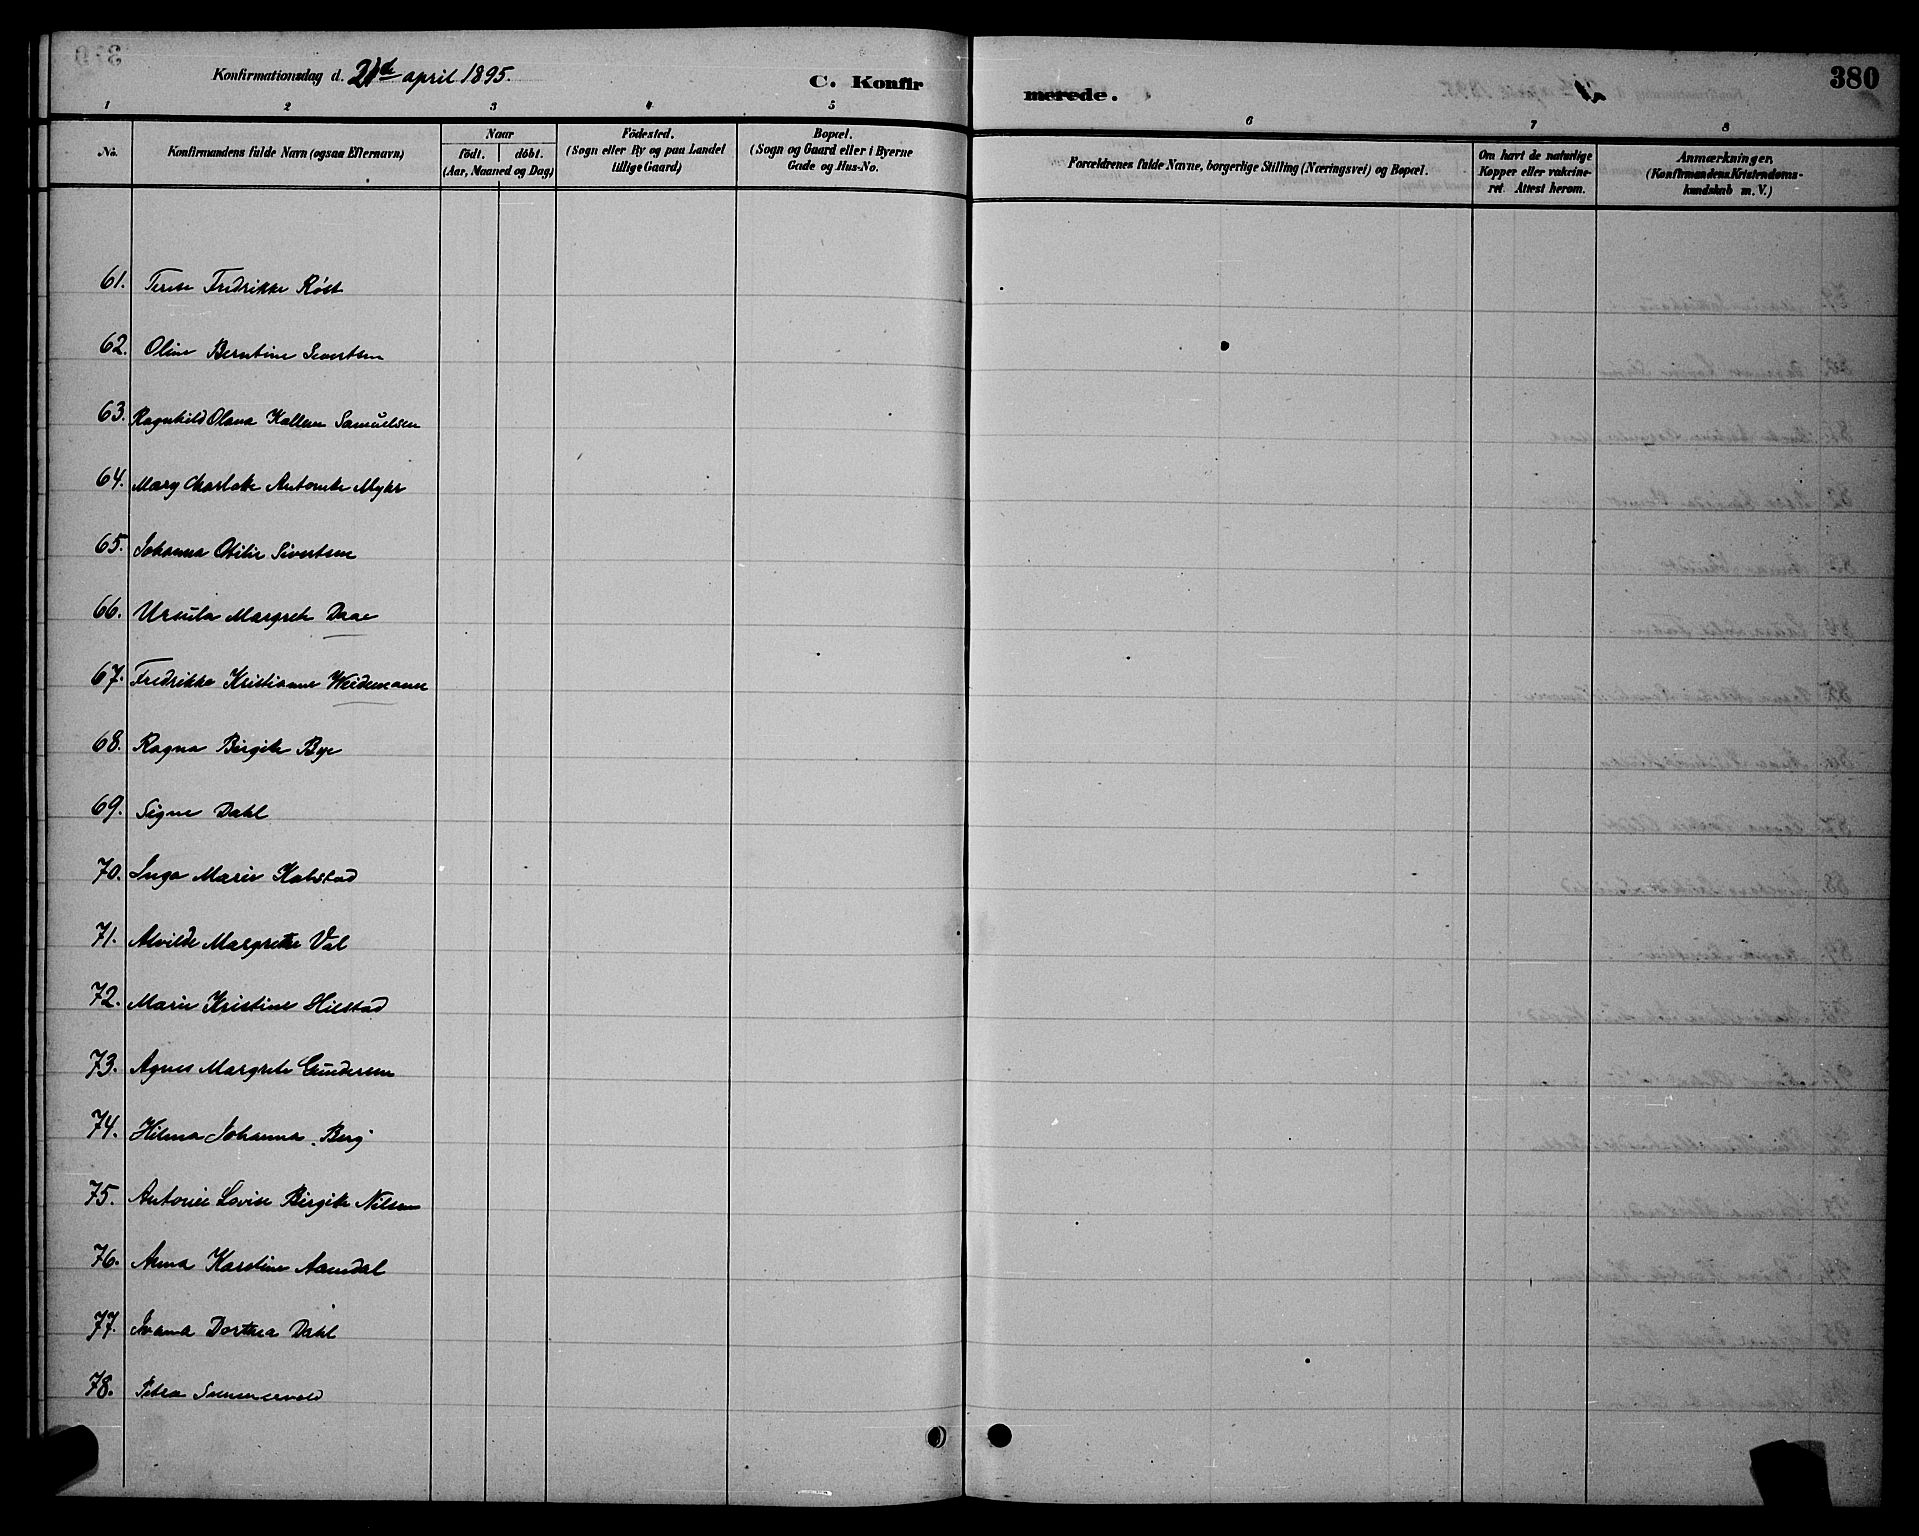 Konfirmationsdag d. 21de april 1895.
C. Konfir
merede.
380
1 2 3 4 5 6 7 8
No.
Konfirmandens fulde Navn (ogsaa Efternavn)
Naar
født. døbt.
(Aar, Maaned og Dag)
Födested.
(Sogn eller By og paa Landet
tillige Gaard)
Bopæl.
(Sogn og Gaard eller i Byerne
Gade og Hus-No.
Forældrenes fulde Navne, borgerlige Stilling (Næringsvei) og Bopæl.
Om havt de naturlige
Kopper eller vakcine-
ret. Attest herom.
Anmærkninger.
(Konfirmandens Kristendoms-
kundskab m. V.)
61. Terese Fredrikke Röst
62. Oline Berntine Severtsen
63. Ragnhild Olava Kallem Samuelsen
64. Mary Charlotte Antonette Myhr
65. Johanna Otilie Sivertsen
66. Ursula Margrete Daae
67. Fredrikke Kristianne Weidemann
68. Ragna Birgitte Bye
69. Signe Dahl
70. Inga Marie Kalstad
71. Alvilde Margrethe Val
72. Marie Kristine Hilstad
73. Agnes Margrete Gundersen
74. Hilma Johanna Berg
75. Antonie Lovise Birgitte Nilsen
76. Anna Karoline Aamdal
77. Ivanna Dorthea Dahl
78. Petra Sommervold